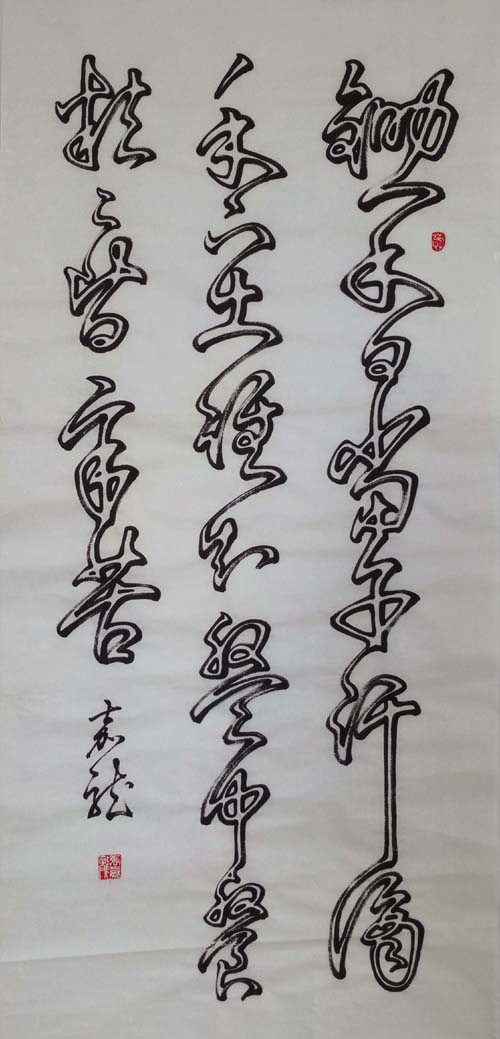 鋤禾日當午汗滴
禾下土誰知盤中餐
粒々皆辛苦